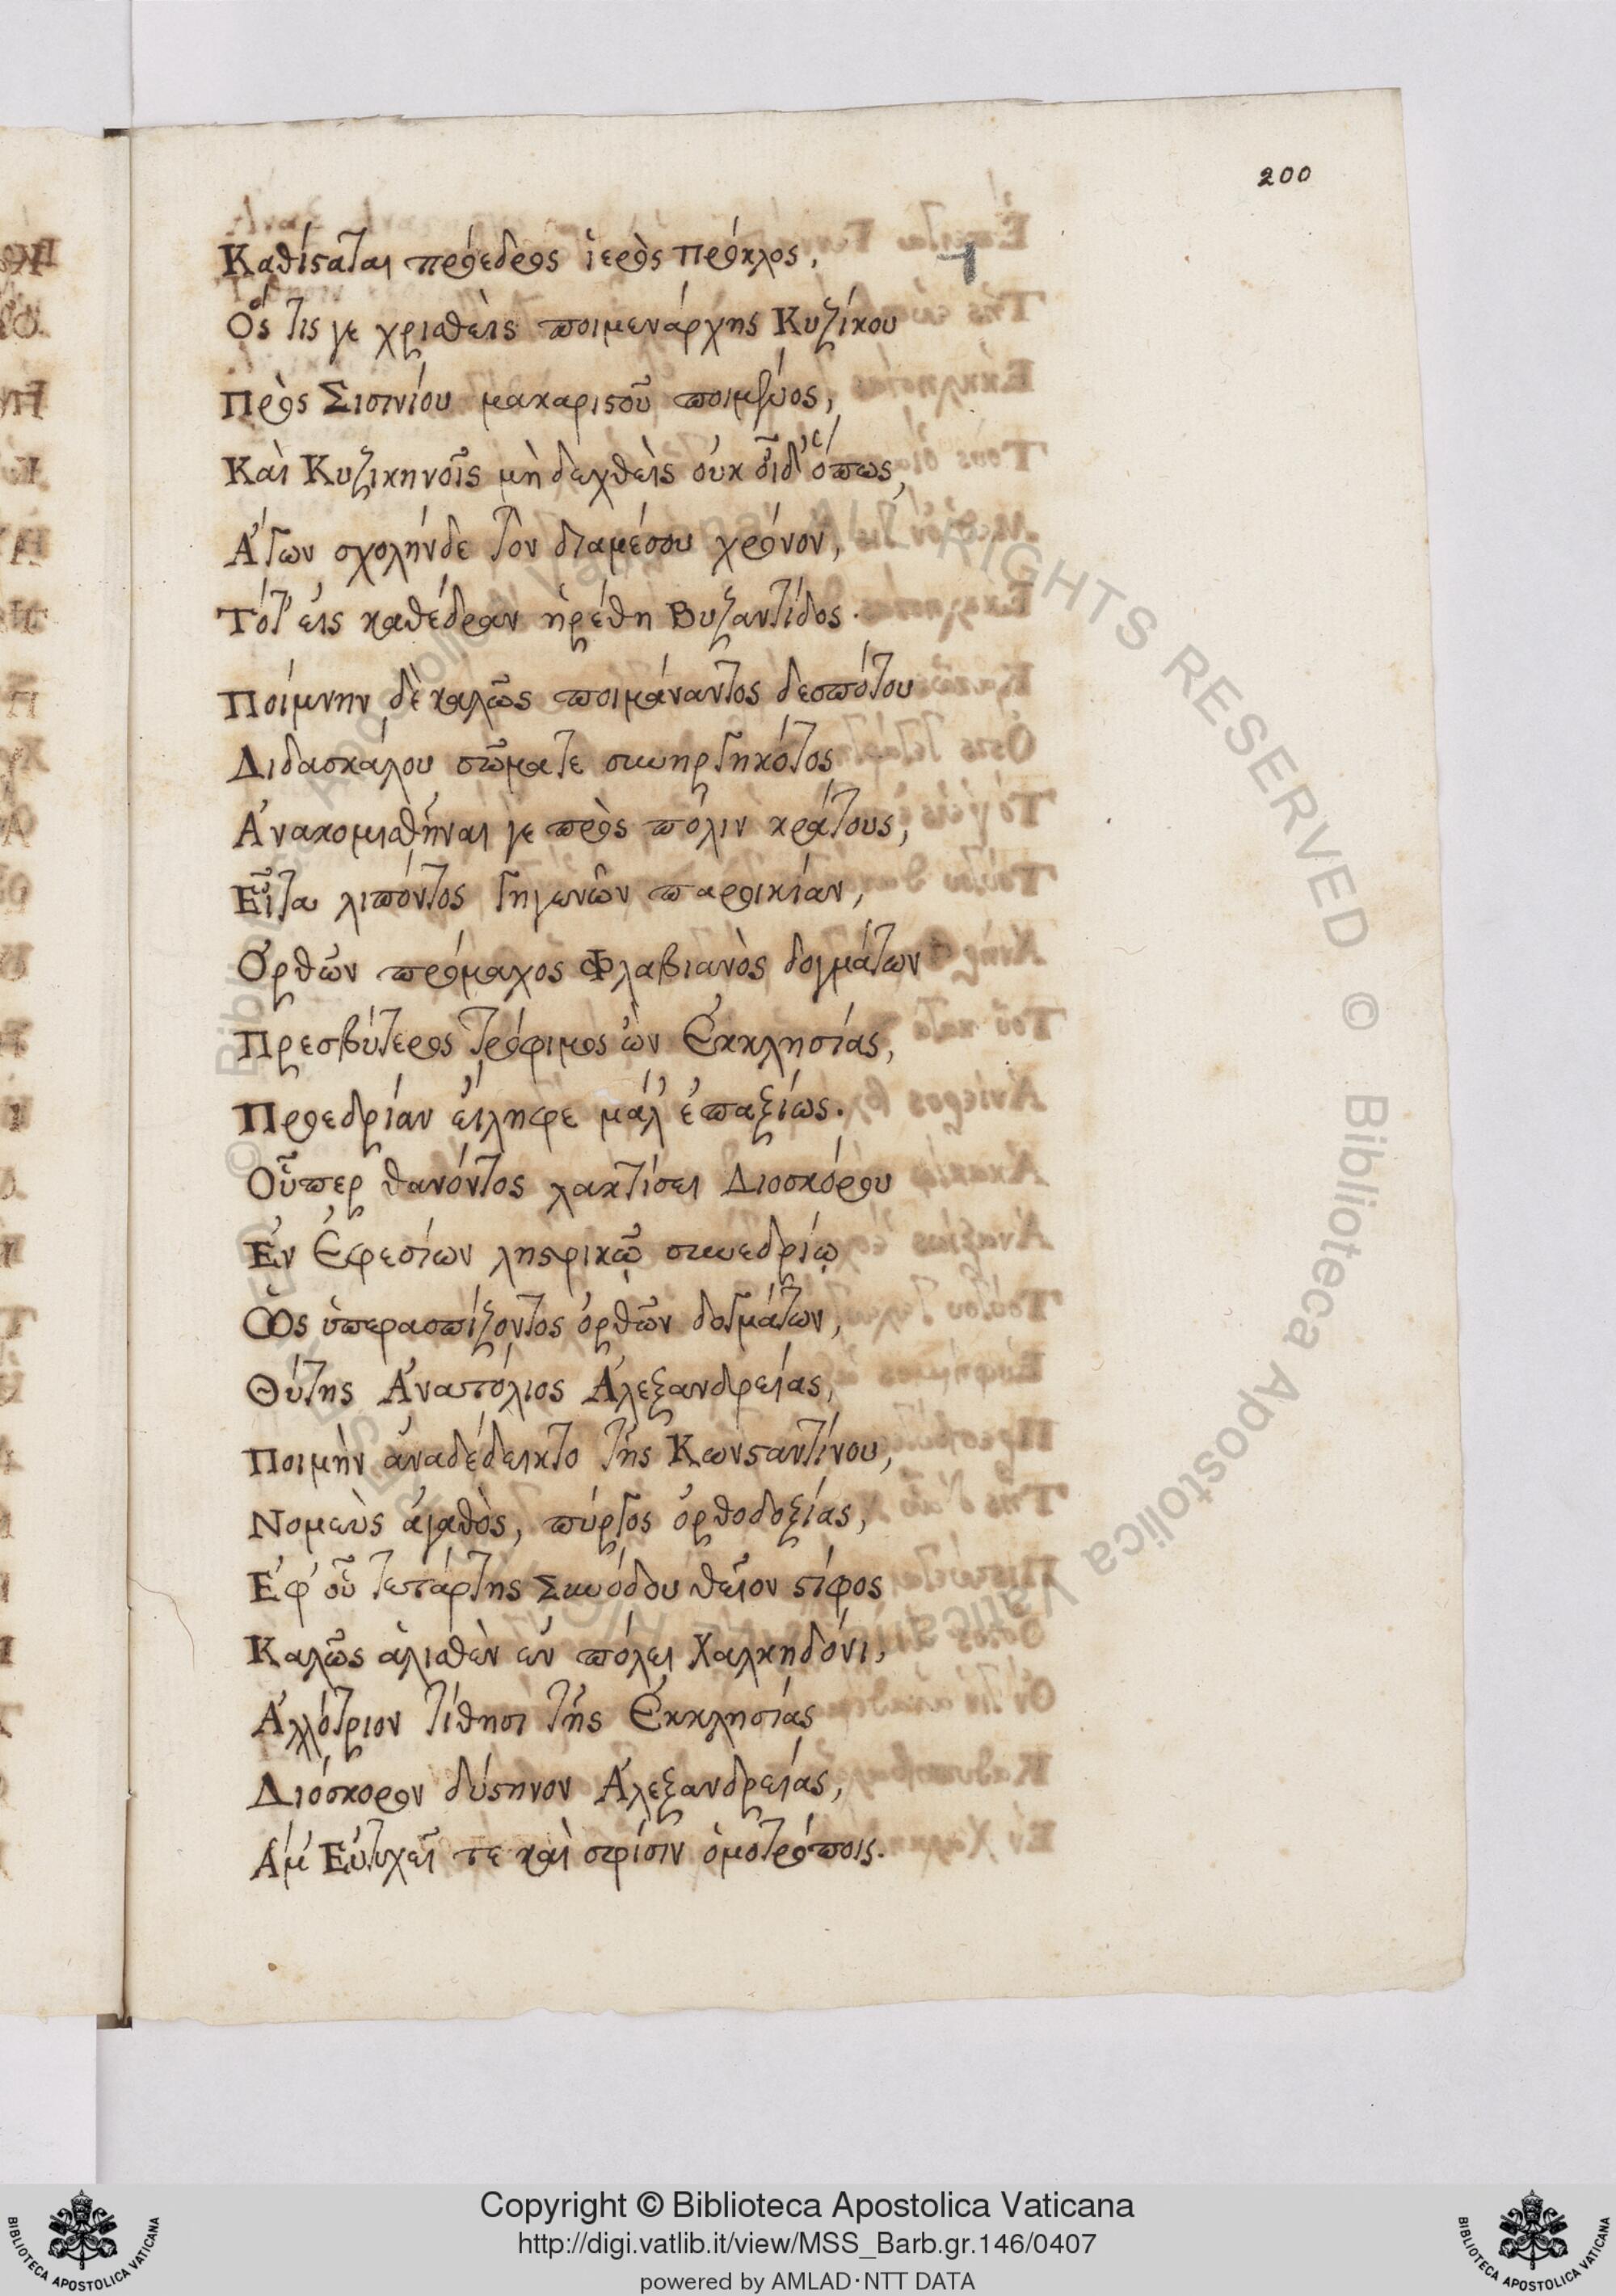 200
Καθίσταται πρόεδρος ἱερὸς Πρόκλος,
Ὅς τις γε χρισθεὶς ποιμενάρχης Κυζίκου
Πρὸς Σισινίου μακαριστοῦ ποιμένος,
Καὶ Κυζικηνοῖς μὴ δεχθεὶς οὐκ οἶδ' ὅπως,
Ἄγων σχολήνδε τὸν διαμέσου χρόνον,
Τότ' εἰς καθέδραν ᾑρέθη Βυζαντίδος.
Ποίμνην δὲ καλῶς ποιμάναντος δεσπότου
Διδασκάλου σῶμα τε συνηργηκότος
Ἀνακομισθῆναι γε πρὸς πόλιν κράτους,
Εἶτα λιπόντος γηγενῶν παροικίαν,
Ὀρθῶν πρόμαχος Φλαβιανὸς δογμάτων
Πρεσβύτερος τρόφιμος ὢν Ἐκκλησίας,
Προεδρίαν εἴληφε μάλ' ἐπαξίως.
Οὗπερ θανόντος λακτίσει Διοσκόρου
Ἐν Ἐφεσίων λῃστρικῷ συνεδρίῳ
Ὡς ὑπερασπίζοντος ὀρθῶν δογμάτων,
Θύτης Ἀνατόλιος Ἀλεξανδρείας,
Ποιμὴν ἀναδέδεικτο τῆς Κωνσταντίνου,
Νομεὺς ἀγαθὸς, πύργος ὀρθοδοξίας,
Ἐφ' οὗ τετάρτης Συνόδου θεῖον στίφος
Καλῶς ἁλισθὲν ἐν πόλει Χαλκηδόνι,
Ἀλλότριον τίθησι τῆς Ἐκκλησίας
Διόσκορον δύστηνον Ἀλεξανδρείας,
Ἅμ' Εὐτυχεῖ τε καὶ σφίσιν ὁμοτρόποις.
© Biblioteca Apostolica Vaticana ALL RIGHTS RESERVED © Biblioteca Apostolica Vaticana
Copyright © Biblioteca Apostolica Vaticana
http://digi.vatlib.it/view/MSS_Barb.gr.146/0407
powered by AMLAD·NTT DATA
BIBLIOTECA APOSTOLICA VATICANA
BIBLIOTECA APOSTOLICA VATICANA